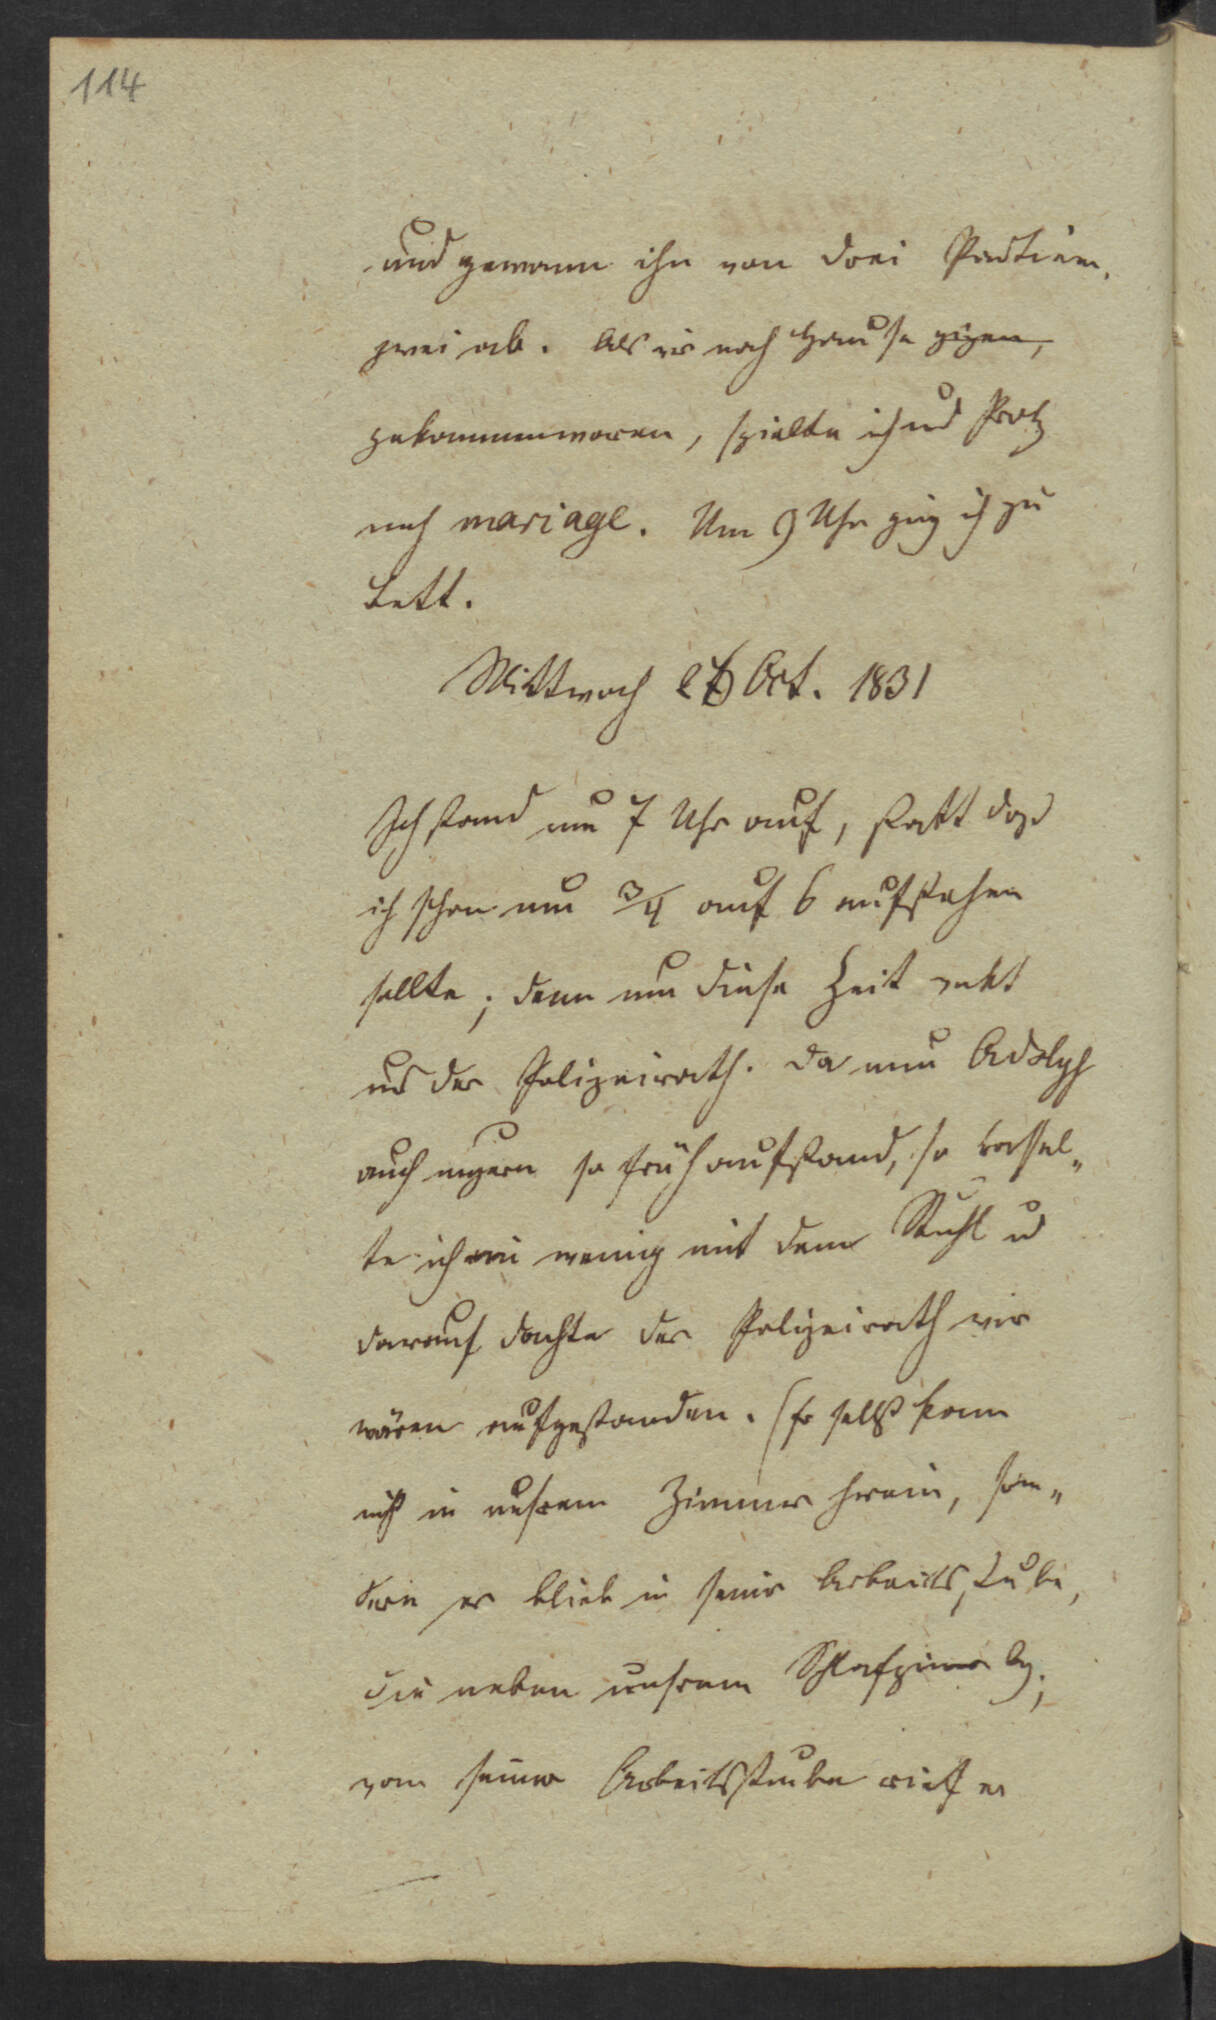 114
und gewann ihn von drei Partien,
zwei ab. Als wir nach Hause gigen,
gekommen waren, spielte ich und Protz
noch mariage. Um 9 Uhr ging ich zu
Bett.
Mittwoch 26 Oct. 1831
Ich stand um 7 Uhr auf, statt daß
ich schon um 3/4 auf 6 aufstehen
sollte; denn um diese Zeit wekt
uns der Polizeirath. Da nun Adolph
auch ungern so früh aufstand, so rassel„
te ich ein wenig mit dem Stuhl u
darauf dachte der Polizeirath wir
wären aufgestanden. (Er selbst kam
nicht in unsrem Zimmer herein, son„
dern er blieb in seinr Arbeitsstube,
die neben unsrem Schlafzimer lag;
von seiner Arbeitsstube rief er